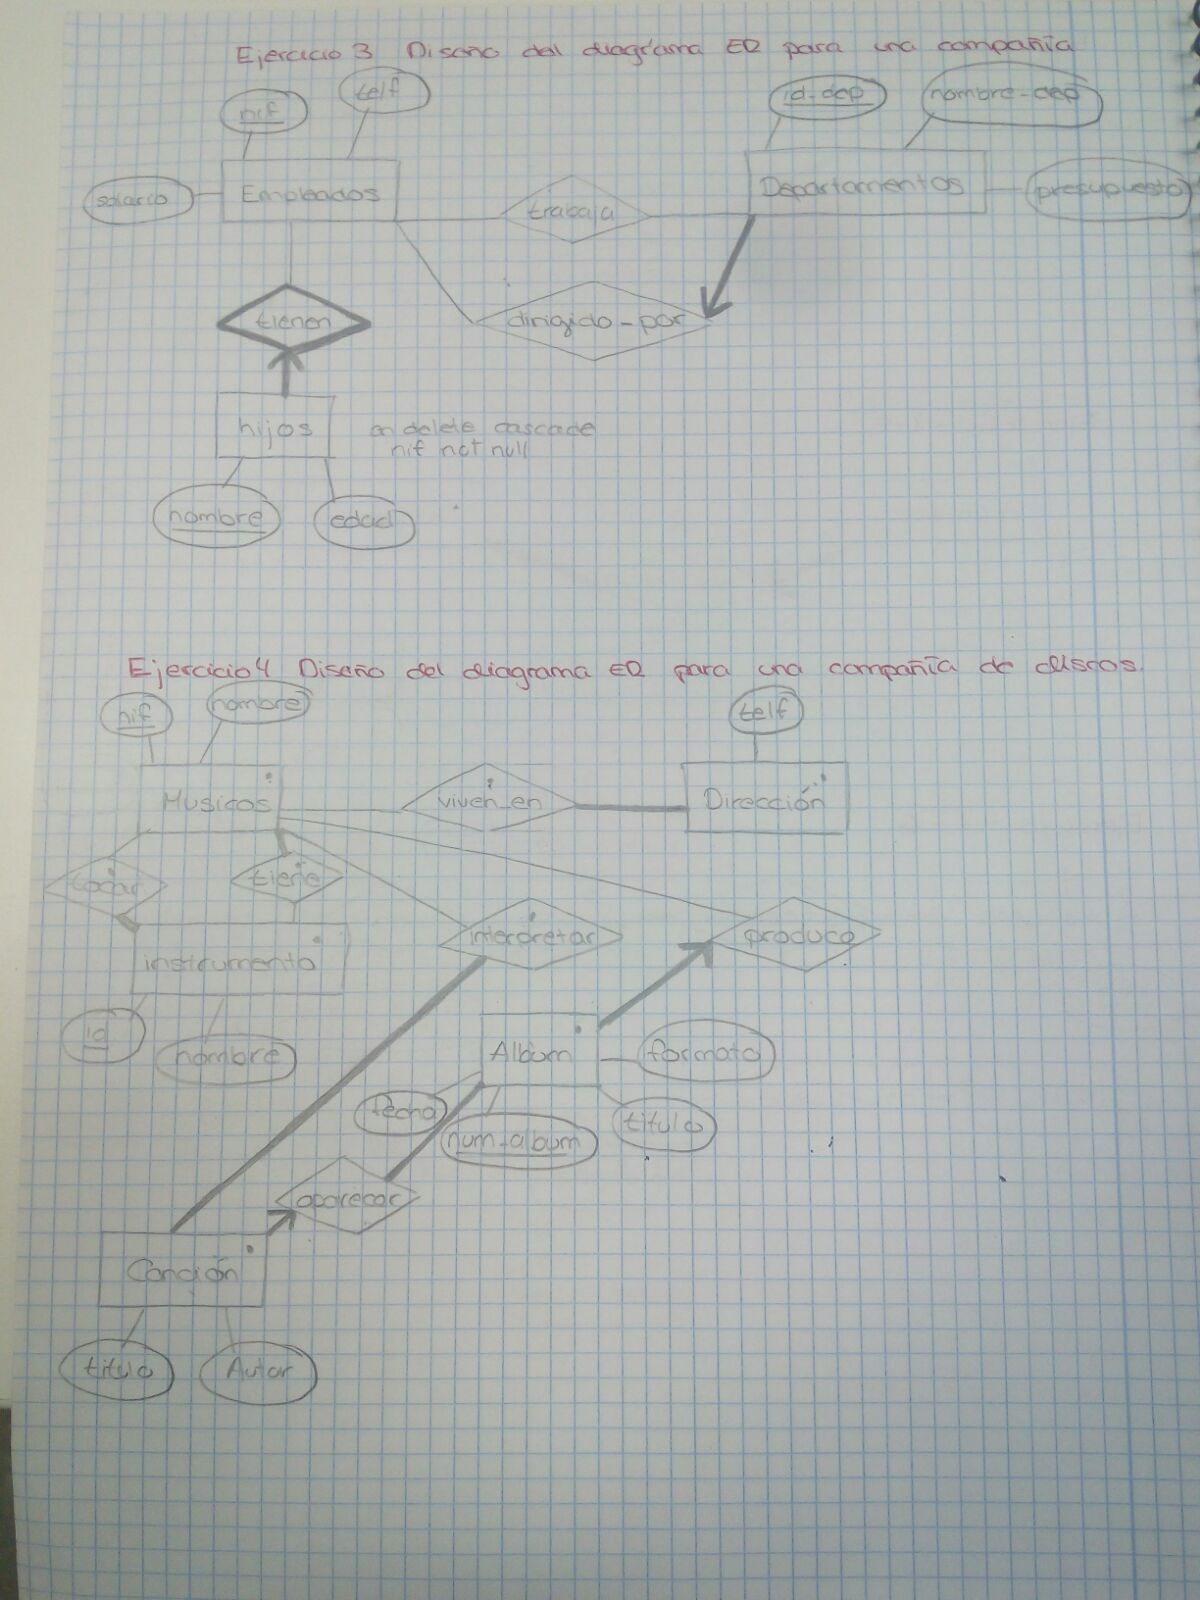 Ejercicio 3 Diseño del diagrama ER para una compañía
nif
telf
id-dep
nombre-dep
salario
Empleados
trabaja
Departamentos
presupuesto
tienen
dirigido-por
hijos
on delete cascade
nif not null
nombre
edad
Ejercicio 4 Diseño del diagrama ER para una compañía de discos.
nif
nombre
telf
Musicos
viven-en
Dirección
tocar
tiene
interpretar
produce
instrumento
id
nombre
Album
formato
fecha
num-album
titulo
aparecer
Canción
titulo
Autor